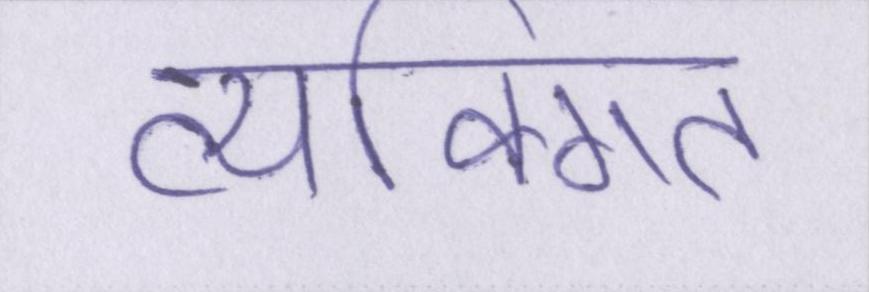 व्यक्तिगत